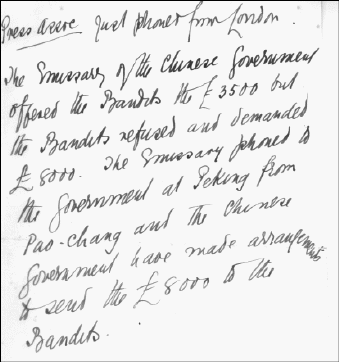 Press Assoc Just phoned from London.
The Emissary of the Chinese Government
offered the Bandits the £3500 but
the Bandits refused and demanded
£8000. The Emissary phoned to
the Government at Peking from
Pao-Chang and the Chinese
Government have made arrangements
to send the £8000 to the
Bandits.